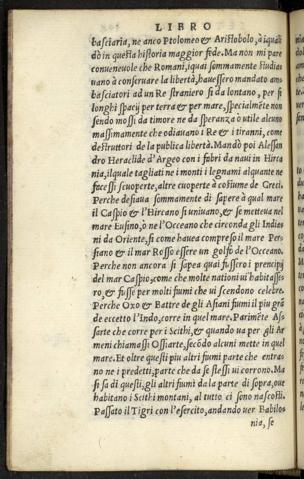 LIBRO
basciaria, ne anco Ptolomeo & Aristobolo, à iquali
dò in questa historia maggior fede. Ma non mi pare
conueneuole che Romani, iquai sommamente studia
uano à conseruare la libertà, hauessero mandato am
basciatori ad un Re straniero si da lontano, per si
longhi spacij per terra & per mare, specialmēte non
sendo mossi da timore ne da speranza ò utile alcuno
massimamente che odiauano i Re & i tiranni, come
destruttori de la publica libertà. Mandò poi Alessan
dro Heraclide d'Argeo con i fabri da naui in Hirca
nia, ilquale tagliati ne i monti i legnami alquante ne
facessi scuoperte, altre cuoperte à costume de Greci.
Perche desiaua sommamente di sapere à qual mare
il Caspio & l'Hircano si uniuano, & se metteua nel
mare Eusino, ò ne l'Occeano che circonda gli Indie
ni da Oriente, si come hauea compreso il mare Per
siano & il mar Rosso essere un golfo de l'Occeano.
Perche non ancora si sapea quai fussero i prencipij
del mar Caspio, come che molte nationi ui habitasse
ro, & fusse per molti fiumi che ui scendono celebre.
Perche Oxo & Battre de gli Asiani fiumi il piu grā
de eccetto l'Indo, corre in quel mare. Parimēte As
sarte che corre per i Scithi, & quando ua per gli Ar
meni chiamassi Ossiarte, secōdo alcuni mette in quel
mare. Et oltre questi piu altri fiumi parte che entra
no ne i predetti, parte che da se stessi ui corrono. Ma
si sa di questi, gli altri fiumi da la parte di sopra, oue
habitano i Scithi montani, al tutto ci sono nascosti.
Passato il Tigri con l'esercito, andando uer Babilo
nia, se